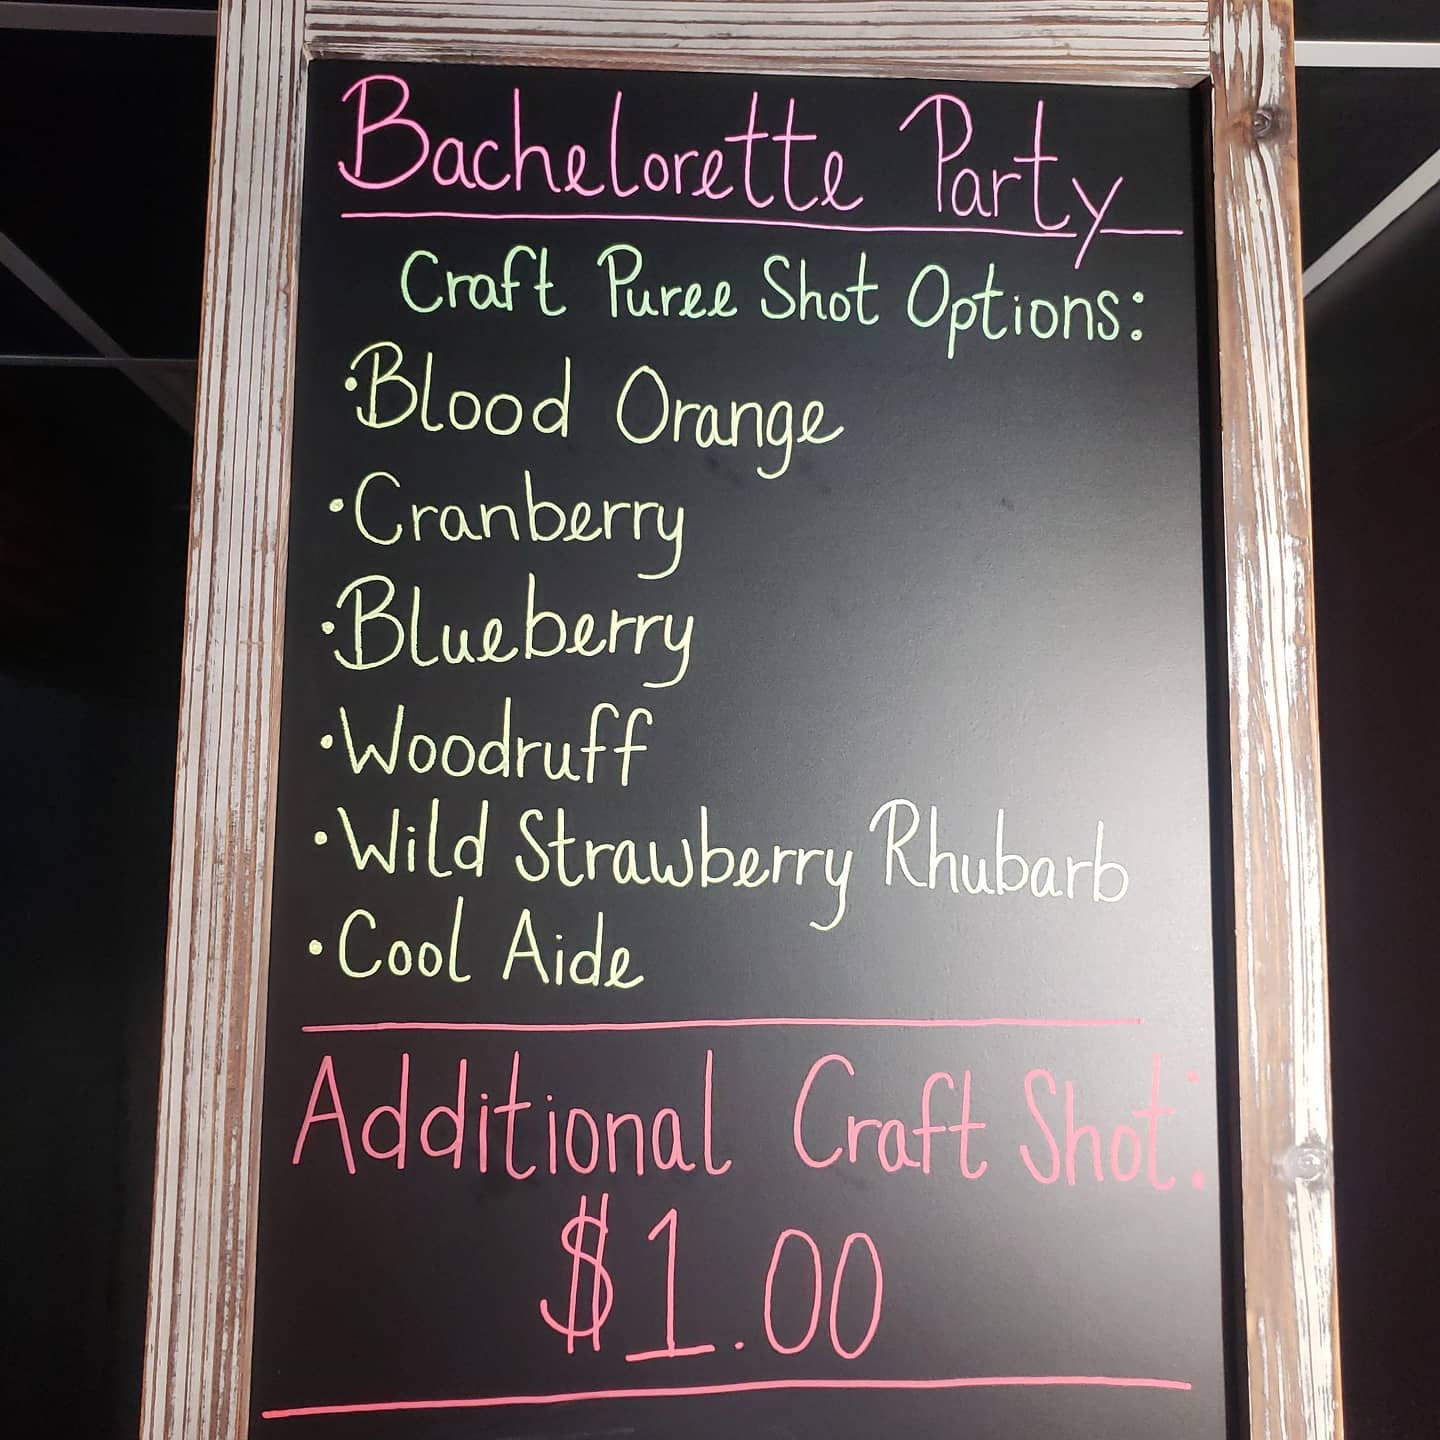 Bachelorette Party
Craft Puree Shot Options:
•Blood Orange
•Cranberry
•Blueberry
•Woodruff
•Wild Strawberry Rhubarb
•Cool Aide
Additional Craft Shot:
$1.00